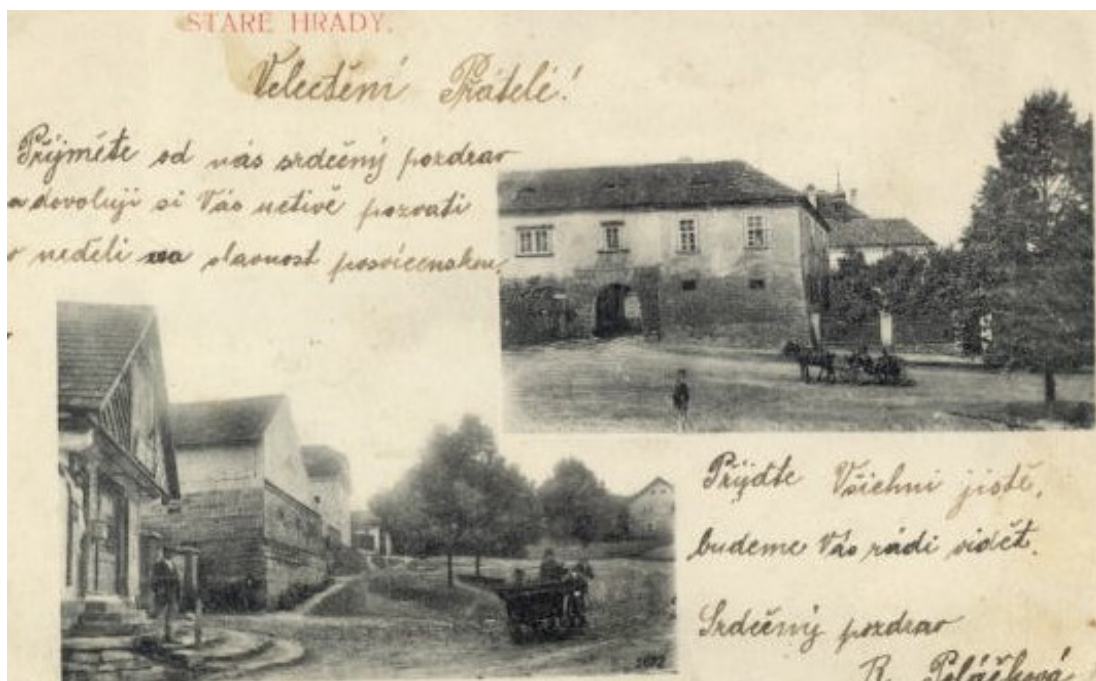 STARÉ HRADY.
Velectění Přátelé!
Přijměte od nás srdečný pozdrav
a dovoluji si Vás uctivě pozvati
v neděli na slavnost posvícenskou.
Přijďte Všichni jistě,
budeme Vás rádi vidět.
Srdečný pozdrav
R.